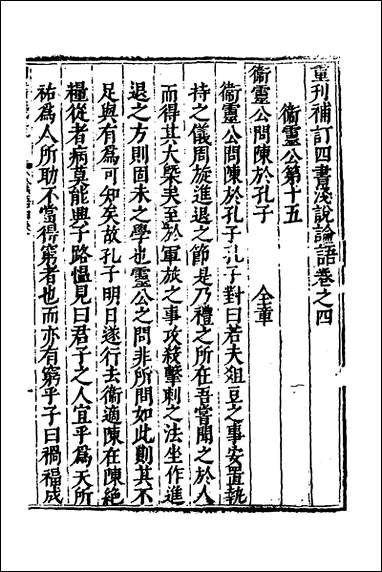 重刊補訂四書淺說論語卷之四
衞靈公第十五
衞靈公問陳於孔子 全章
衞靈公問陳於孔子孔子對曰若夫俎豆之事安置執
持之儀周旋進退之節是乃禮之所在吾嘗聞之於人
而得其大槩矣至於軍旅之事攻殺擊刺之法坐作進
退之方則固未之學也靈公之問非所問如此則其不
足與有為可知矣故孔子明日遂行去衞適陳在陳絶
糧從者病莫能興子路慍見曰君子之人宜乎為天所
祐為人所助不當得窮者也而亦有窮乎子曰禍福成